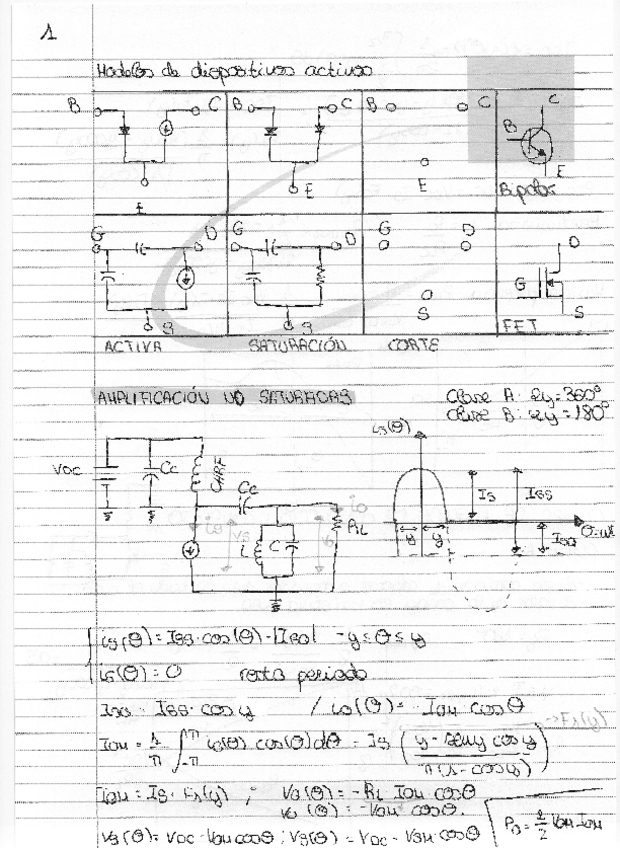 1
Modelos de dispositivos activos
B C B C B C C
B
E E E E
Bipolar
G D G D G D D
G
S S S S
FET
ACTIVA SATURACIÓN CORTE
AMPLIFICACIÓN NO SATURADAS
Clase A: 2y=360°
Clase B: 2y=180°
is(θ)
VDC Cc CHRF Cc
is vs L C v0 i0 RL
Is Iss
y y IsQ θ=wt
is(θ) = Iss·cos(θ) - |IsQ| -y ≤ θ ≤ y
is(θ) = 0 resto periodo
IsQ = Iss·cos y / i0(θ) = -IOM cos θ
IOM = 1/π ∫-π^π is(θ) cos(θ)dθ = Is (y - sen y cos y / π(1 - cos y))
IOM = Is·Fs(y) ; V0(θ) = -RL IOM cos θ
V0(θ) = -VOM cos θ.
Vs(θ) = VDC - VOM cos θ ; Vs(θ) = VDC - VSM·cos θ
P0 = 1/2 VOM·IOM